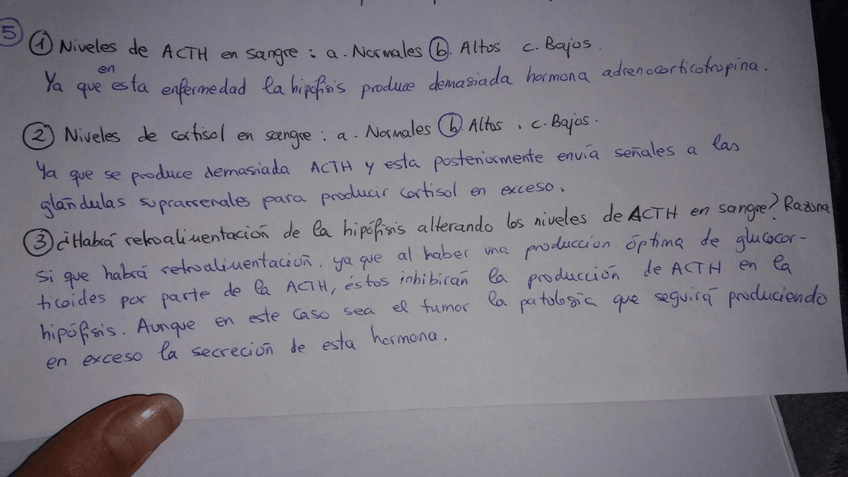 5 ① Niveles de ACTH en sangre: a. Normales ⓑ. Altos c. Bajos.
Ya que en esta enfermedad la hipófisis produce demasiada hormona adrenocorticotropina.
② Niveles de cortisol en sangre: a. Normales ⓑ Altos. c. Bajos.
Ya que se produce demasiada ACTH y esta posteriormente envía señales a las
glándulas suprarrenales para producir cortisol en exceso.
③ ¿Habrá retroalimentación de la hipófisis alterando los niveles de ACTH en sangre? Razona
Si que habrá retroalimentación, ya que al haber una produccion óptima de glucocor-
ticoides por parte de la ACTH, éstos inhibirán la producción de ACTH en la
hipófisis. Aunque en este caso sea el tumor la patología que seguirá produciendo
en exceso la secreción de esta hormona.